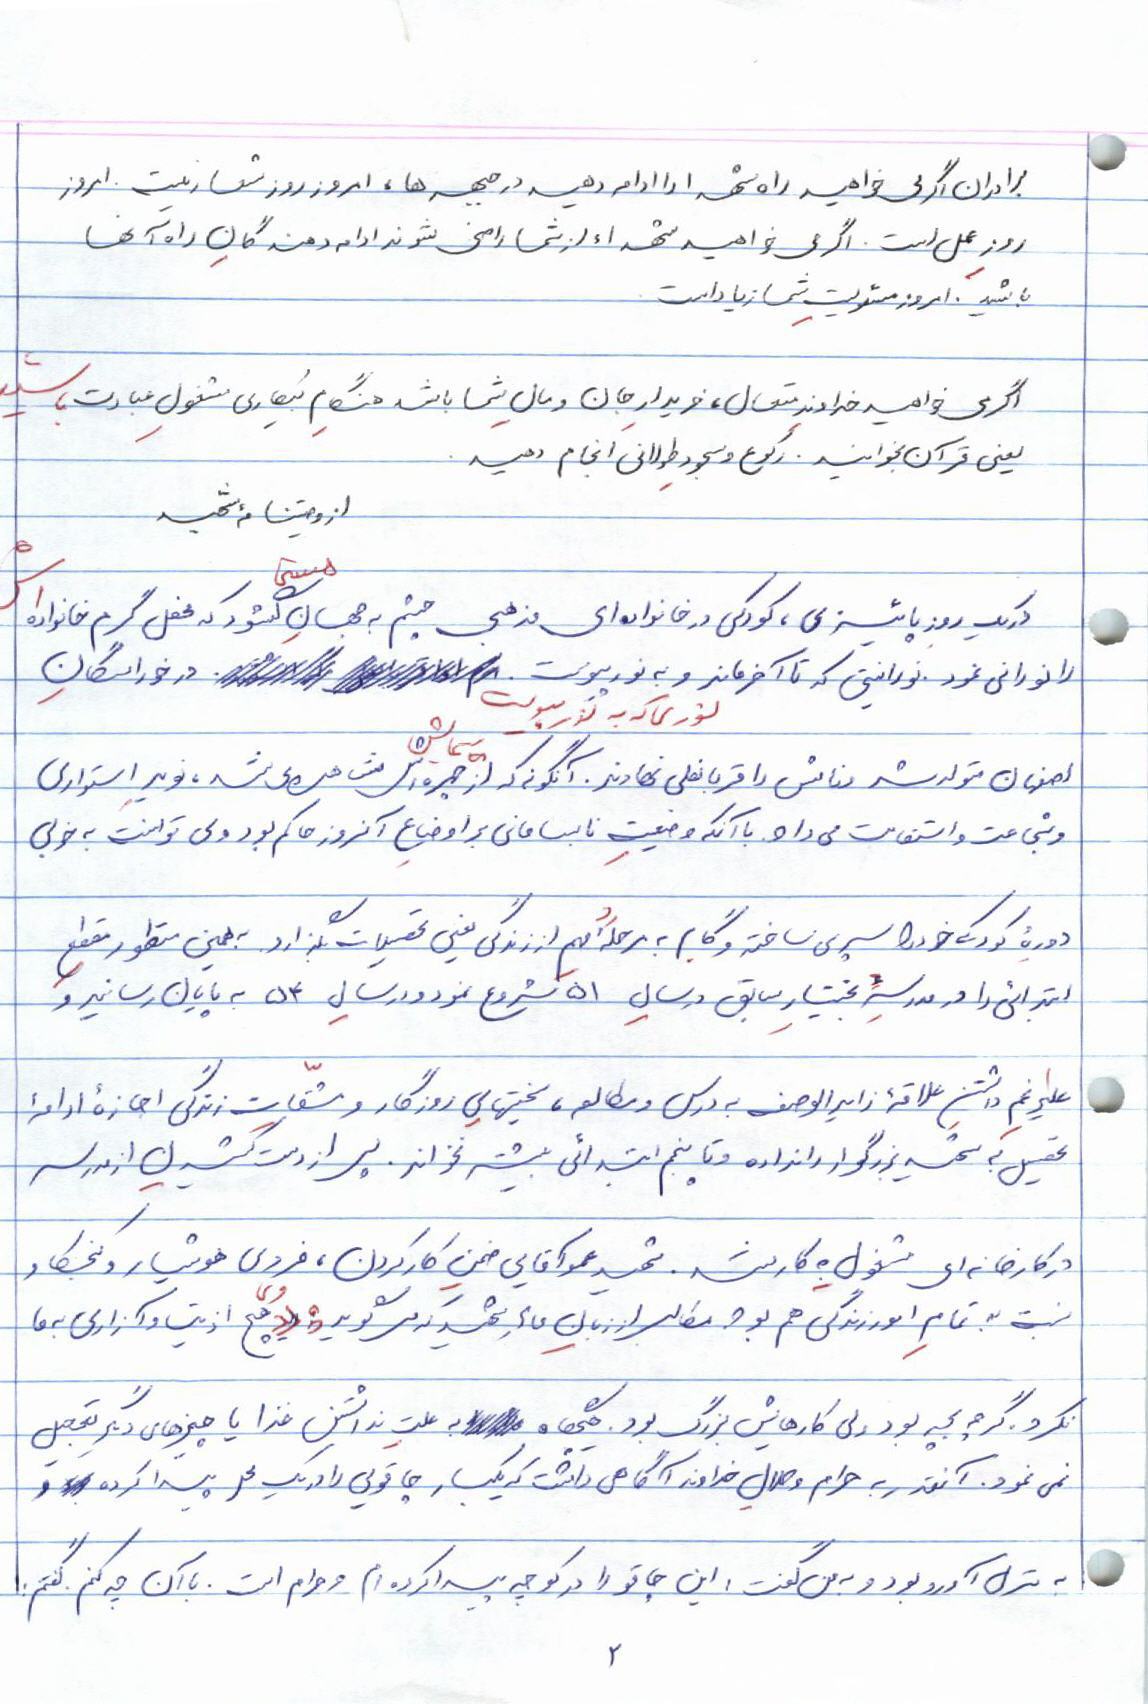 برادران اگر می خواهید راه شهدا را ادامه دهید در جبهه ها، امروز روز شعار نیست. امروز
روزِ عمل است. اگر می خواهید شهداء از شما راضی شوند ادامه دهندگانِ راه آنها
باشید. امروز مسئولیتِ شما زیاد است.
اگر می خواهید خداوندِ متعال، خریدارِ جان و مالِ شما باشد هنگامِ بیکاری مشغولِ عبادت باشید
یعنی قرآن بخوانید. رکوع و سجودِ طولانی انجام دهید.
از وصیتنامهٔ شهید
در یک روزِ پائیزی، کودکی در خانواده ای مذهبی چشم به جهانِ هستی گشود که محفل گرم خانواده اش
را نورانی نمود. نورانیتی که تا آخر ماند و به نور پیوست. در خوراسگانِ
نوری که به نور پیوست
اصفهان متولد شد و نامش را قربانعلی نهادند. آنگونه که از چهره اش سیمایش مشاهده می شد، نویدِ استواری
و شجاعت و استقامت می داد. با آنکه وضعیتِ نابسامانی بر اوضاعِ آنروز حاکم بود وی توانست به خوبی
دورهٔ کودکی خود را سپری ساخته و گام به مرحلهٔ مهم از زندگی یعنی تحصیلات بگذارد. به همین منظور مقطعِ
ابتدائی را در مدرسهٔ بختیارِ سابق در سالِ ۵۱ شروع نمود و در سالِ ۵۴ به پایان رسانید و
علیرغمِ داشتنِ علاقهٔ زایدالوصف به درس و مطالعه، سختیهای روزگار و مشقّاتِ زندگی اجازهٔ ادامهٔ
تحصیل به شهید بزرگوار را نداده و تا پنجم ابتدائی بیشتر نخواند. پس از دست کشیدنِ از مدرسه
در کارخانه ای مشغولِ به کار شد. شهید عموآقایی ضمنِ کار کردن، فردی هوشیار و کنجکاو
نسبت به تمامِ امور زندگی هم بود. مطالبی از زبانِ مادرِ شهید که می گوید: وی هیچ اذیت و آزاری به ما
نکرد. گرچه بچه بود ولی کارهایش بزرگ بود. هیچگاه به علتِ نداشتن غذا یا چیزهای دیگر تعجیل
نمی نمود. آنقدر به حرام و حلالِ خداوند آگاهی داشت که یکبار چاقویی را در یک محل پیدا کرده و
به منزل آورده بود و به من گفت: این چاقو را در کوچه پیدا کرده ام و حرام است. با آن چه کنم. گفتم:
۲